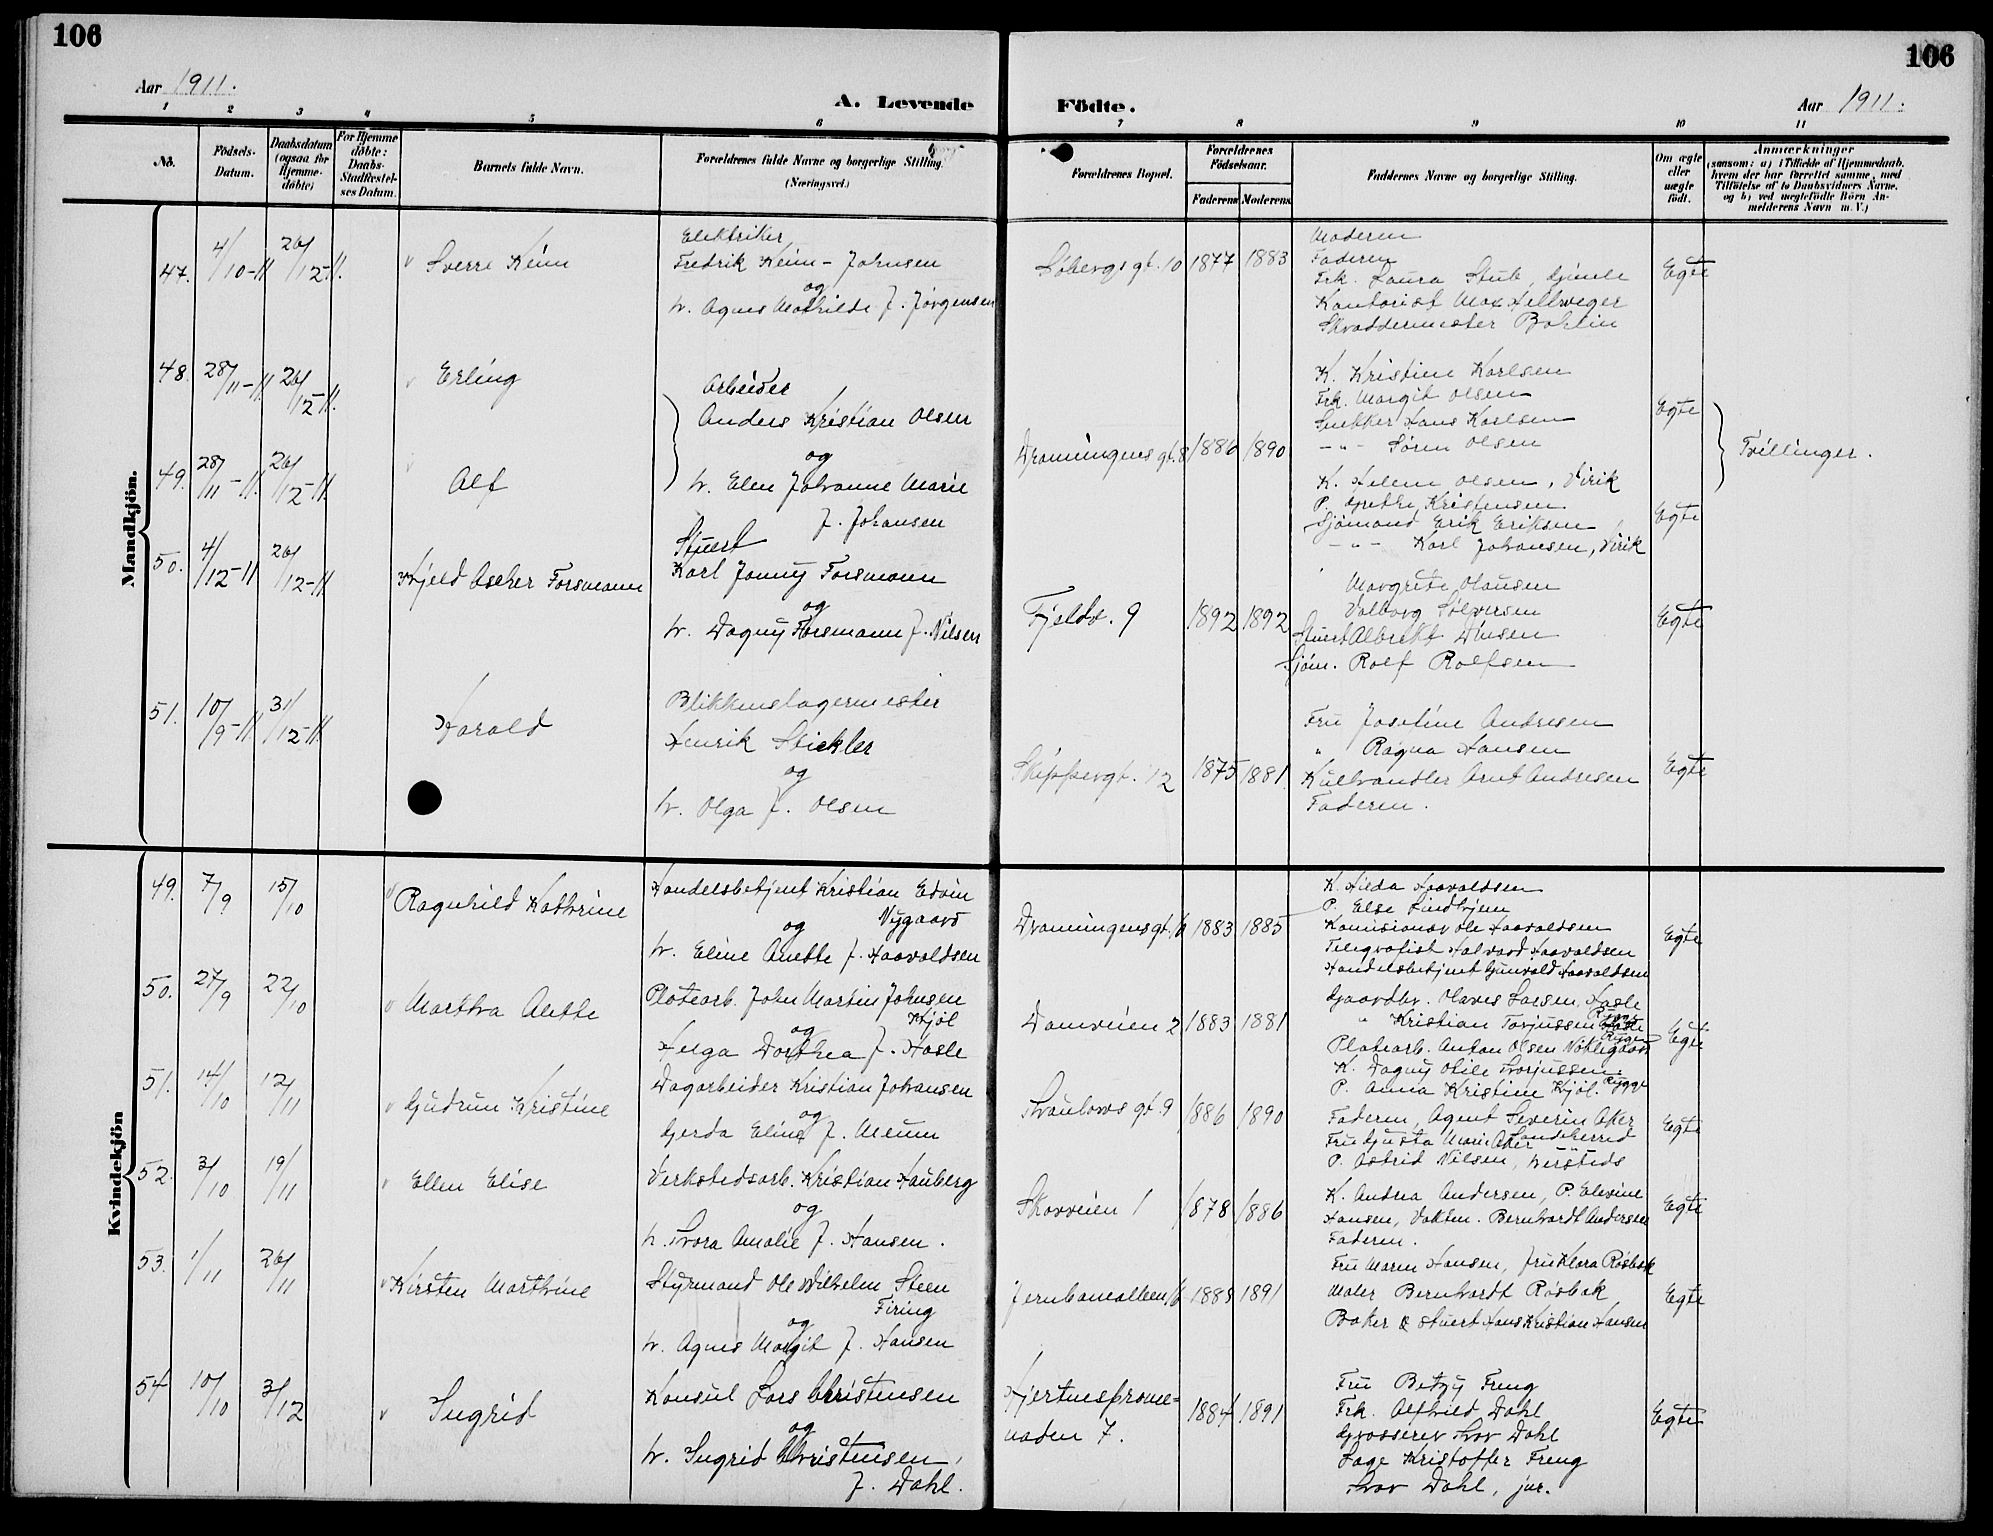 106
106
Aar 1911.
A. Levende Födte.
Aar 1911.
1 2 3 4 5 6 7 8 9 10 11
No.
Födsels-Datum.
Daabsdatum (ogsaa for Hjemme-döbte)
For Hjemme döbte: Daabs-Stadfæstelses Datum.
Barnets fulde Navn.
Forældrenes fulde Navne og borgerlige Stilling. (Næringsvei.)
Forældrenes Bopæl.
Forældrenes Födselsaar.
Faderens Moderens
Faddernes Navne og borgerlige Stilling.
Om ægte eller uægte födt.
Anmærkninger
(saasom: a) i Tilfælde af Hjemmedaab, hvem der har forrettet samme, med Tilföielse af to Daabsvidners Navne, og b) ved uægtefödte Börn Anmelderens Navn m. V.)
Mandkjön.
47. 4/10-11 26/12-11. Sverre Keim
Elektriker
Fredrik Keim-Johnsen
og
h. Agnes Mathilde f. Jørgensen
Söbergs gt. 10 1877 1883
Moderen
Faderen
Frk. Laura Stub, Gjimle
Kontorist Max Fellweger
Skræddermester Bohlin
Egte
48. 28/11-11 26/12-11. Erling
49. 28/11-11. 26/12-11. Alf
Arbeider
Anders Kristian Olsen
og
h. Elen Johanne Marie
f. Johansen
Dronningens gt. 8 1886 1890
K. Kristine Karlsen
Frk. Margit Olsen
Snekker Hans Karlsen
-"- Sören Olsen
Egte
K. Helene Olsen, Virik
P. Grethe Kristensen
Sjömand Erik Eriksen
-"- Karl Johansen, Virik
Egte
Tvillinger.
50. 4/12-11 26/12-11 Kjeld Ascher Forsmann
Stuert
Karl Jonny Forsmann
og
h. Dagny Forsmann f. Nilsen
Fjeldv. 9 1892 1892
Margrete Olausen
Valborg Sölversen
Stuert Albrekt Dinsen
Sjöm. Rolf Rolfsen
Egte
51. 10/9-11 31/12-11. Harald
Blikkenslagermester
Henrik Stickler
og
h. Olga f. Olsen
Skippergt. 12 1875 1881.
Fru Josefine Andresen
" Ragna Hansen
Kulhandler Arnt Andresen
Faderen.
Egte
Kvindekjön
49. 7/9 15/10 Ragnhild Kathrine
Handelsbetjent Kristian Edvin
Nygaard
og
h. Eline Anette f. Haavaldsen
Dronningens gt. 6 1883 1885
K. Hilda Haavaldsen
P. Else Lindhjem
Komisionær Ole Haavaldsen
Telegrafist Halvard Haavaldsen
Handelsbetjent Gunvald Haavaldsen
Egte
50. 27/9 22/10 Martha Alette
Platearb. John Martin Johnsen
Kjöl
og
Helga Dorthea f. Hasle
Damveien 2 1883 1881
Gaardbr. Olaves Larsen, Hasle
" Kristian Torjussen Hasle
Rygge
Platearb. Anton Olsen Nöklegaard
K. Dagny Otilie Thorjussen
P. Anna Kristine Kjöl. Rygge
Egte
51. 14/10 12/11 Gudrun Kristine
Dagarbeider Kristian Johansen
og
Gerda Eline f. Meum
Thaulows gt. 9 1886 1890
Faderen, Agent Severin Aker
Fru Gusta Marie Aker Sandeherred
P. Astrid Nilsen, hersteds
Egte
52. 3/10 19/11 Ellen Elise
Verkstedsarb. Kristian Hauberg
og
h. Thora Amalie f. Hansen.
Skovveien 1 1878 1886
K. Andrea Andersen, P. Elevine
Hansen, Vaktm. Bernhardt Andersen
Faderen.
Egte
53. 1/11 26/11 Kirsten Marthine
Styrmand Ole Wilhelm Steen
Firing
og
h. Agnes Margit f. Hansen
Jernbanealleen 16 1885 1891
Fru Maren Hansen, fru Klara Rösbak
Maler Bernhardt Rösbak
Baker & stuert Hans Kristian Hansen
Egte
54 10/10 3/12 Ingrid
Konsul Lars Christensen
og
h. Ingrid Christensen,
f. Dahl.
Hjertnespromenaden 7. 1884 1891
Fru Betzy Freng
Frk. Alfhild Dahl
Grosserer Thor Dahl
Lage Kristoffer Freng
Thor Dahl, jur.
Egte